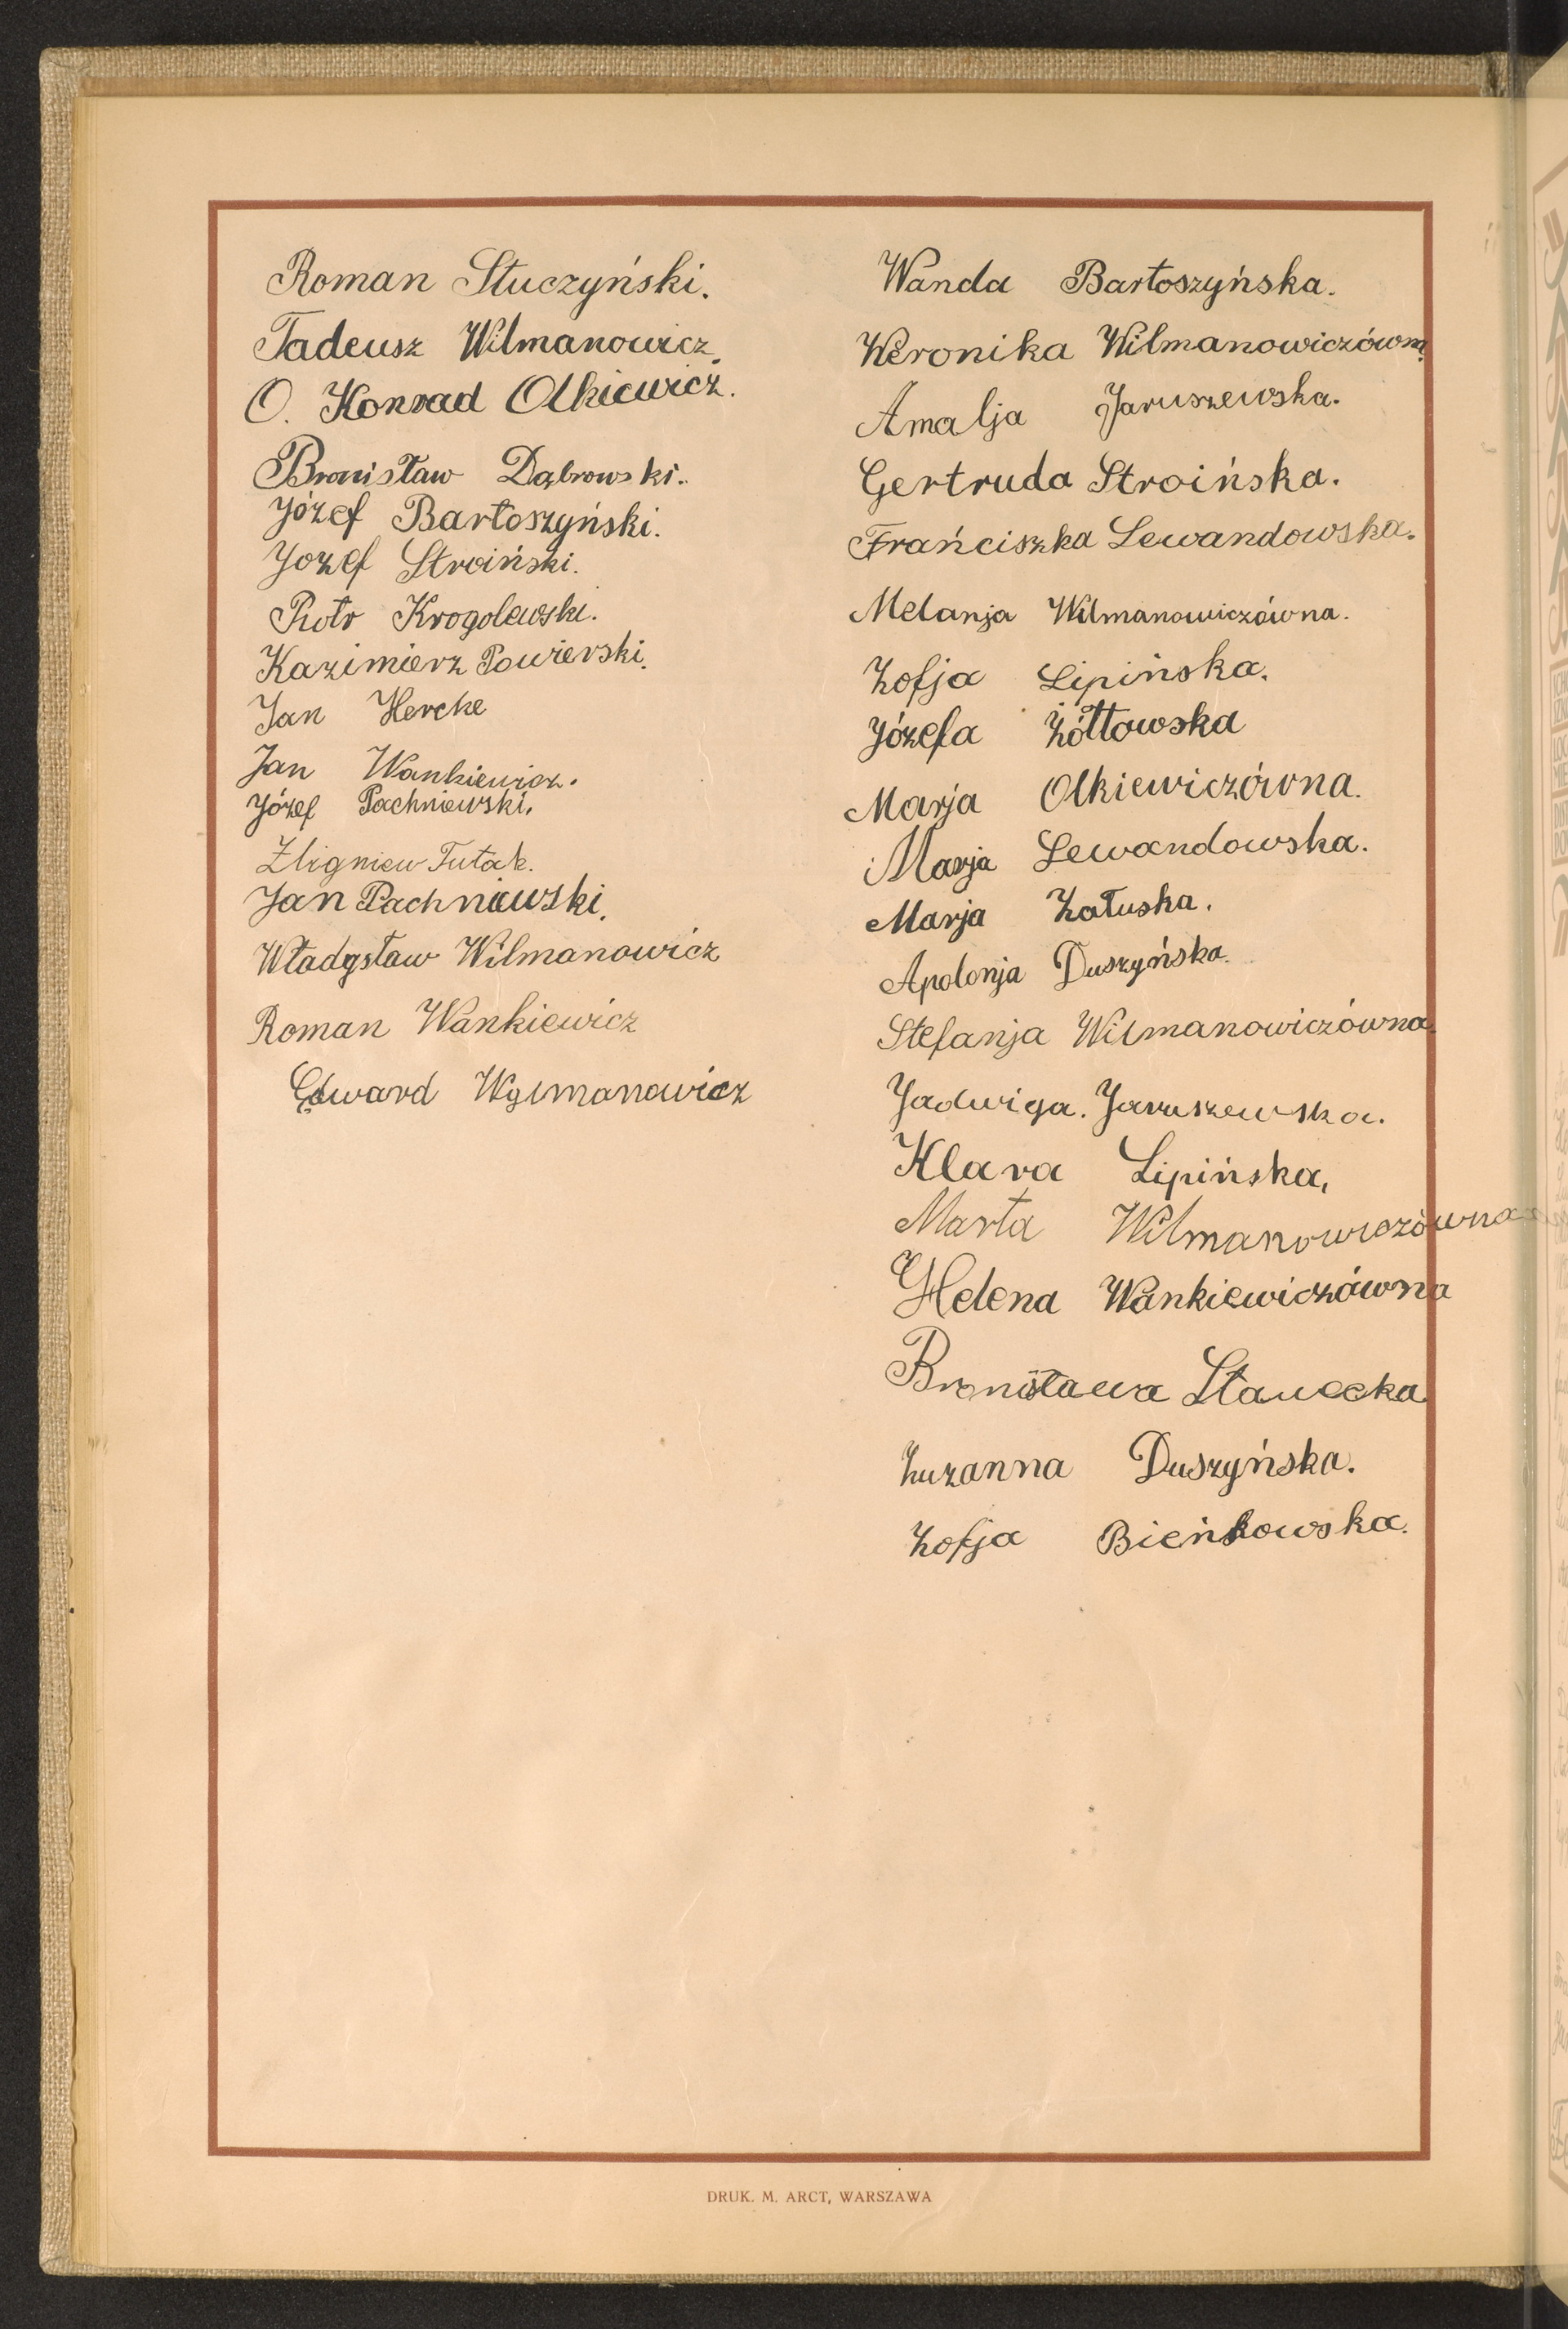 Roman Stuczyński.
Tadeusz Wilmanowicz.
O. Konrad Olkiewicz.
Bronisław Dąbrowski.
Józef Bartoszyński.
Jozef Stroiński.
Piotr Krogolewski.
Kazimierz Powierski.
Jan Hercke
Jan Wankiewicz.
Józef Pachniewski.
Zbigniew Tutak.
Jan Pachniewski.
Władysław Wilmanowicz
Roman Wankiewicz
Edward Wylmanowicz
Wanda Bartoszyńska.
Weronika Wilmanowiczówna
Amalja Jaruszewska.
Gertruda Stroińska.
Frańciszka Lewandowska.
Melanja Wilmanowiczówna.
Zofja Lipińska.
Józefa Żółtowska
Marja Olkiewiczówna.
Marja Lewandowska.
Marja Załuska.
Apolonja Duszyńska.
Stefanja Wilmanowiczówna.
Jadwiga. Jaruszewska.
Klara Lipińska,
Marta Wilmanowiczówna
Helena Wankiewiczówna
Bronisława Stawecka
Zuzanna Duszyńska.
Zofja Bieńkowska.
DRUK. M. ARCT, WARSZAWA